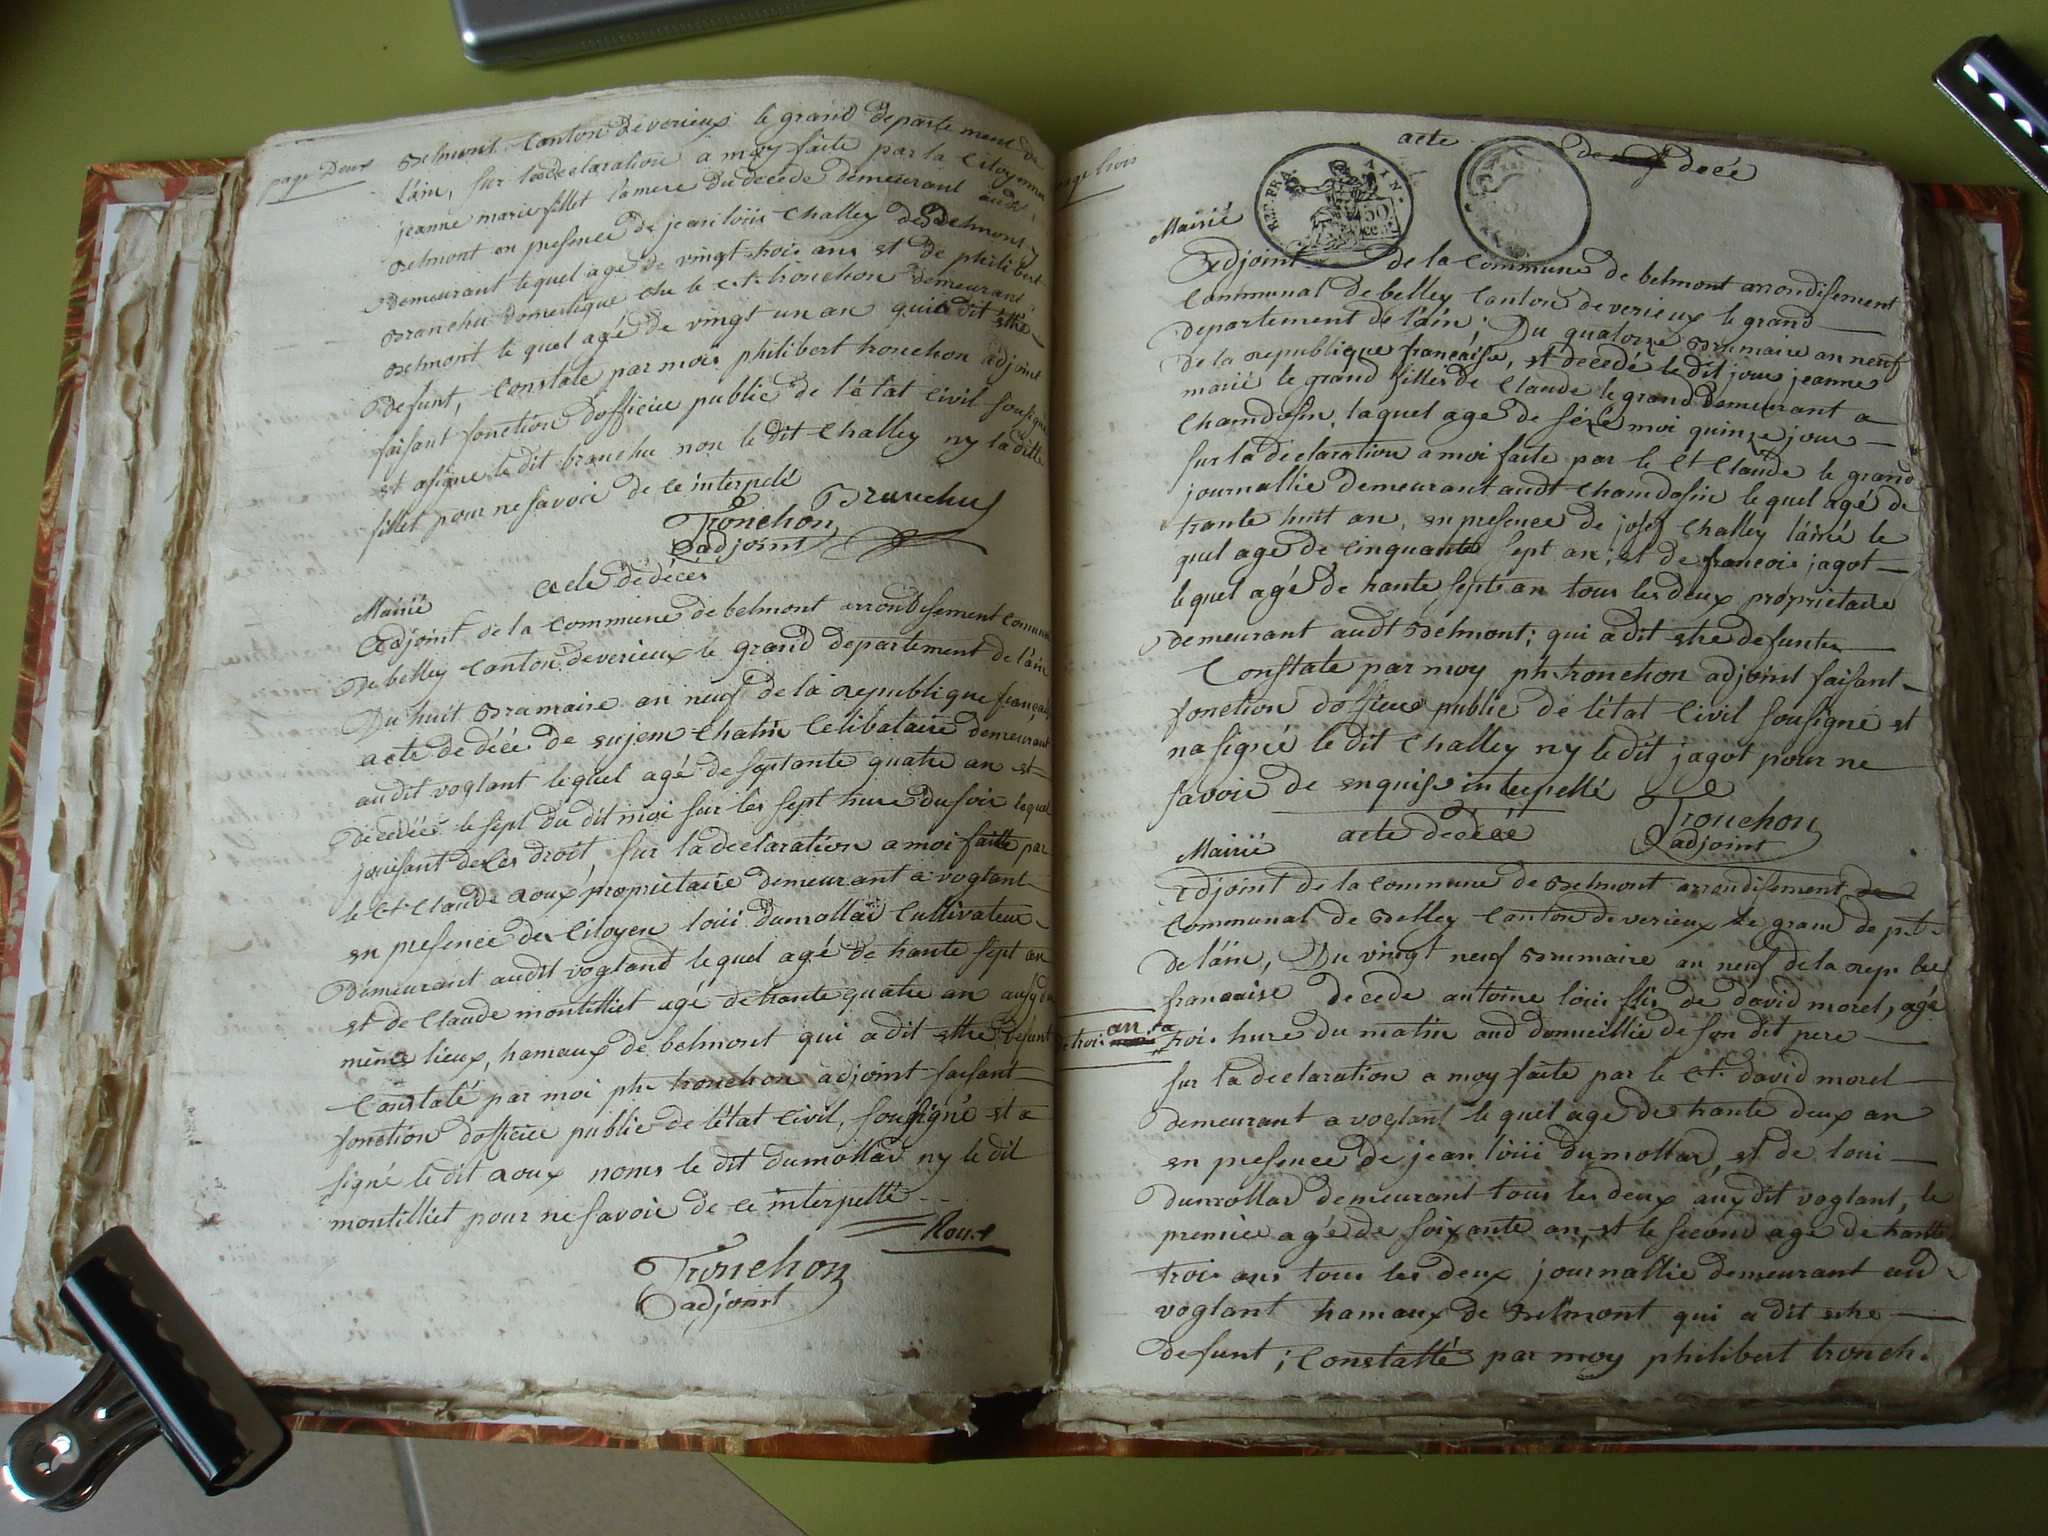 page Deux
Belmont Canton de verieux le grand departement de
L'ain, sur la declaration a moy faite par la Citoyenne
jeanne marie fillet la mere du decede demeurant audt
Belmont en presence de jean loüis Challey de Belmont
demeurant lequel agé de vingt trois ans et de philibert
Branchu domestique ché le ct. tronchon demeurant
Belmont le quel agé de vingt un an qui a dit estre
Defunt, Constate par moi philibert tronchon adjoint
faisant fonction d'officier public de l'état Civil sousigné
et a signe le dit branchu non le dit Challey ny la ditte
fillet pour ne savoir de ce interpelé
Branchu
Tronchon
adjoint
acte de déces
Mairié
Adjoint de la Commune de belmont arrondisement Comunal
de belley Canton de verieux le grand departement de l'ain
Du huit Brumaire an neuf de la republique française
acte de décé de Chatin Celibataire demeurant
au dit voglant lequel agé de soptante quatre an et
décédéé le sept du dit moi sur les sept hure du soir lequel
jouisant de Ces droit, sur la declaration a moi faitte par
le Ct Claude roux proprietaire demeurant a voglant
en presence de Citoyen loüi dumollar Cultivateur
demeurant audit vogland le quel agé de trante sept an
et de Claude montilliet agé de trante quatre an
même lieux, hamaux de belmont qui a dit estre defunt
Constaté par moi ph. tronchon adjoint faisant
fonction d'officier public de l'état Civil, sousigné et a
signé le dit roux le dit dumollar ny le dit
montilliet pour ne savoir de ce interpellé
Roux
Tronchon
adjoint
page trois
acte de decé
REP. FRA. AIN. 50 cent.
Mairié
Adjoint de la Commune de belmont arrondisement
Communal de belley Canton de verieux le grand
departement de l'ain; Du quatorze Brumaire an neuf
de la republique française, et décedé le dit jour jeanne
marié le grand filles de Claude le grand demeurant a
Chamdosin, laquel age de séze moi quinze jour
sur la déclaration a moi faite par le Ct Claude le grand
journallie demeurant audt Chamdosin le quel agé de
trante huit an, en presence de joséf Challey l'ainé le
quel age de Cinquante sept an, et de francois jagot
le quel agé de trante sept an tous les deux proprietaire
demeurant audt Belmont; qui a dit etre defunte
Constate par moy ph. tronchon adjoint faisant
fonction d'officier public de l'état Civil sousigné et
na signé le dit Challey ny le dit jagot pour ne
savoir de enquis interpellé
Tronchon
adjoint
acte decéé
Mairié
Adjoint de la Commune de Belmont arrondisement de
Communal de Belley Canton de verieux le gran dept.
de l'ain, Du vingt neuf Brumaire an neuf de la rep.
francaise decede antoine loüi fils de david morel, agé
de troi an ta
troi hure du matin aud domicillie de son dit pere
sur la declaration a moy faite par le Ct. david morel
demeurant a voglant le quel age de trante deux an
en presence de jean loüi dumollar, et de loui
dumollar demeurant tous les deux aux dit voglant, le
premier agé de soixante an, et le second age de trante
trois ans tous les deux journallie demeurant aud
voglant hamaux de Belmont qui a dit estre
defunt; Constatté par moy philibert tronch.